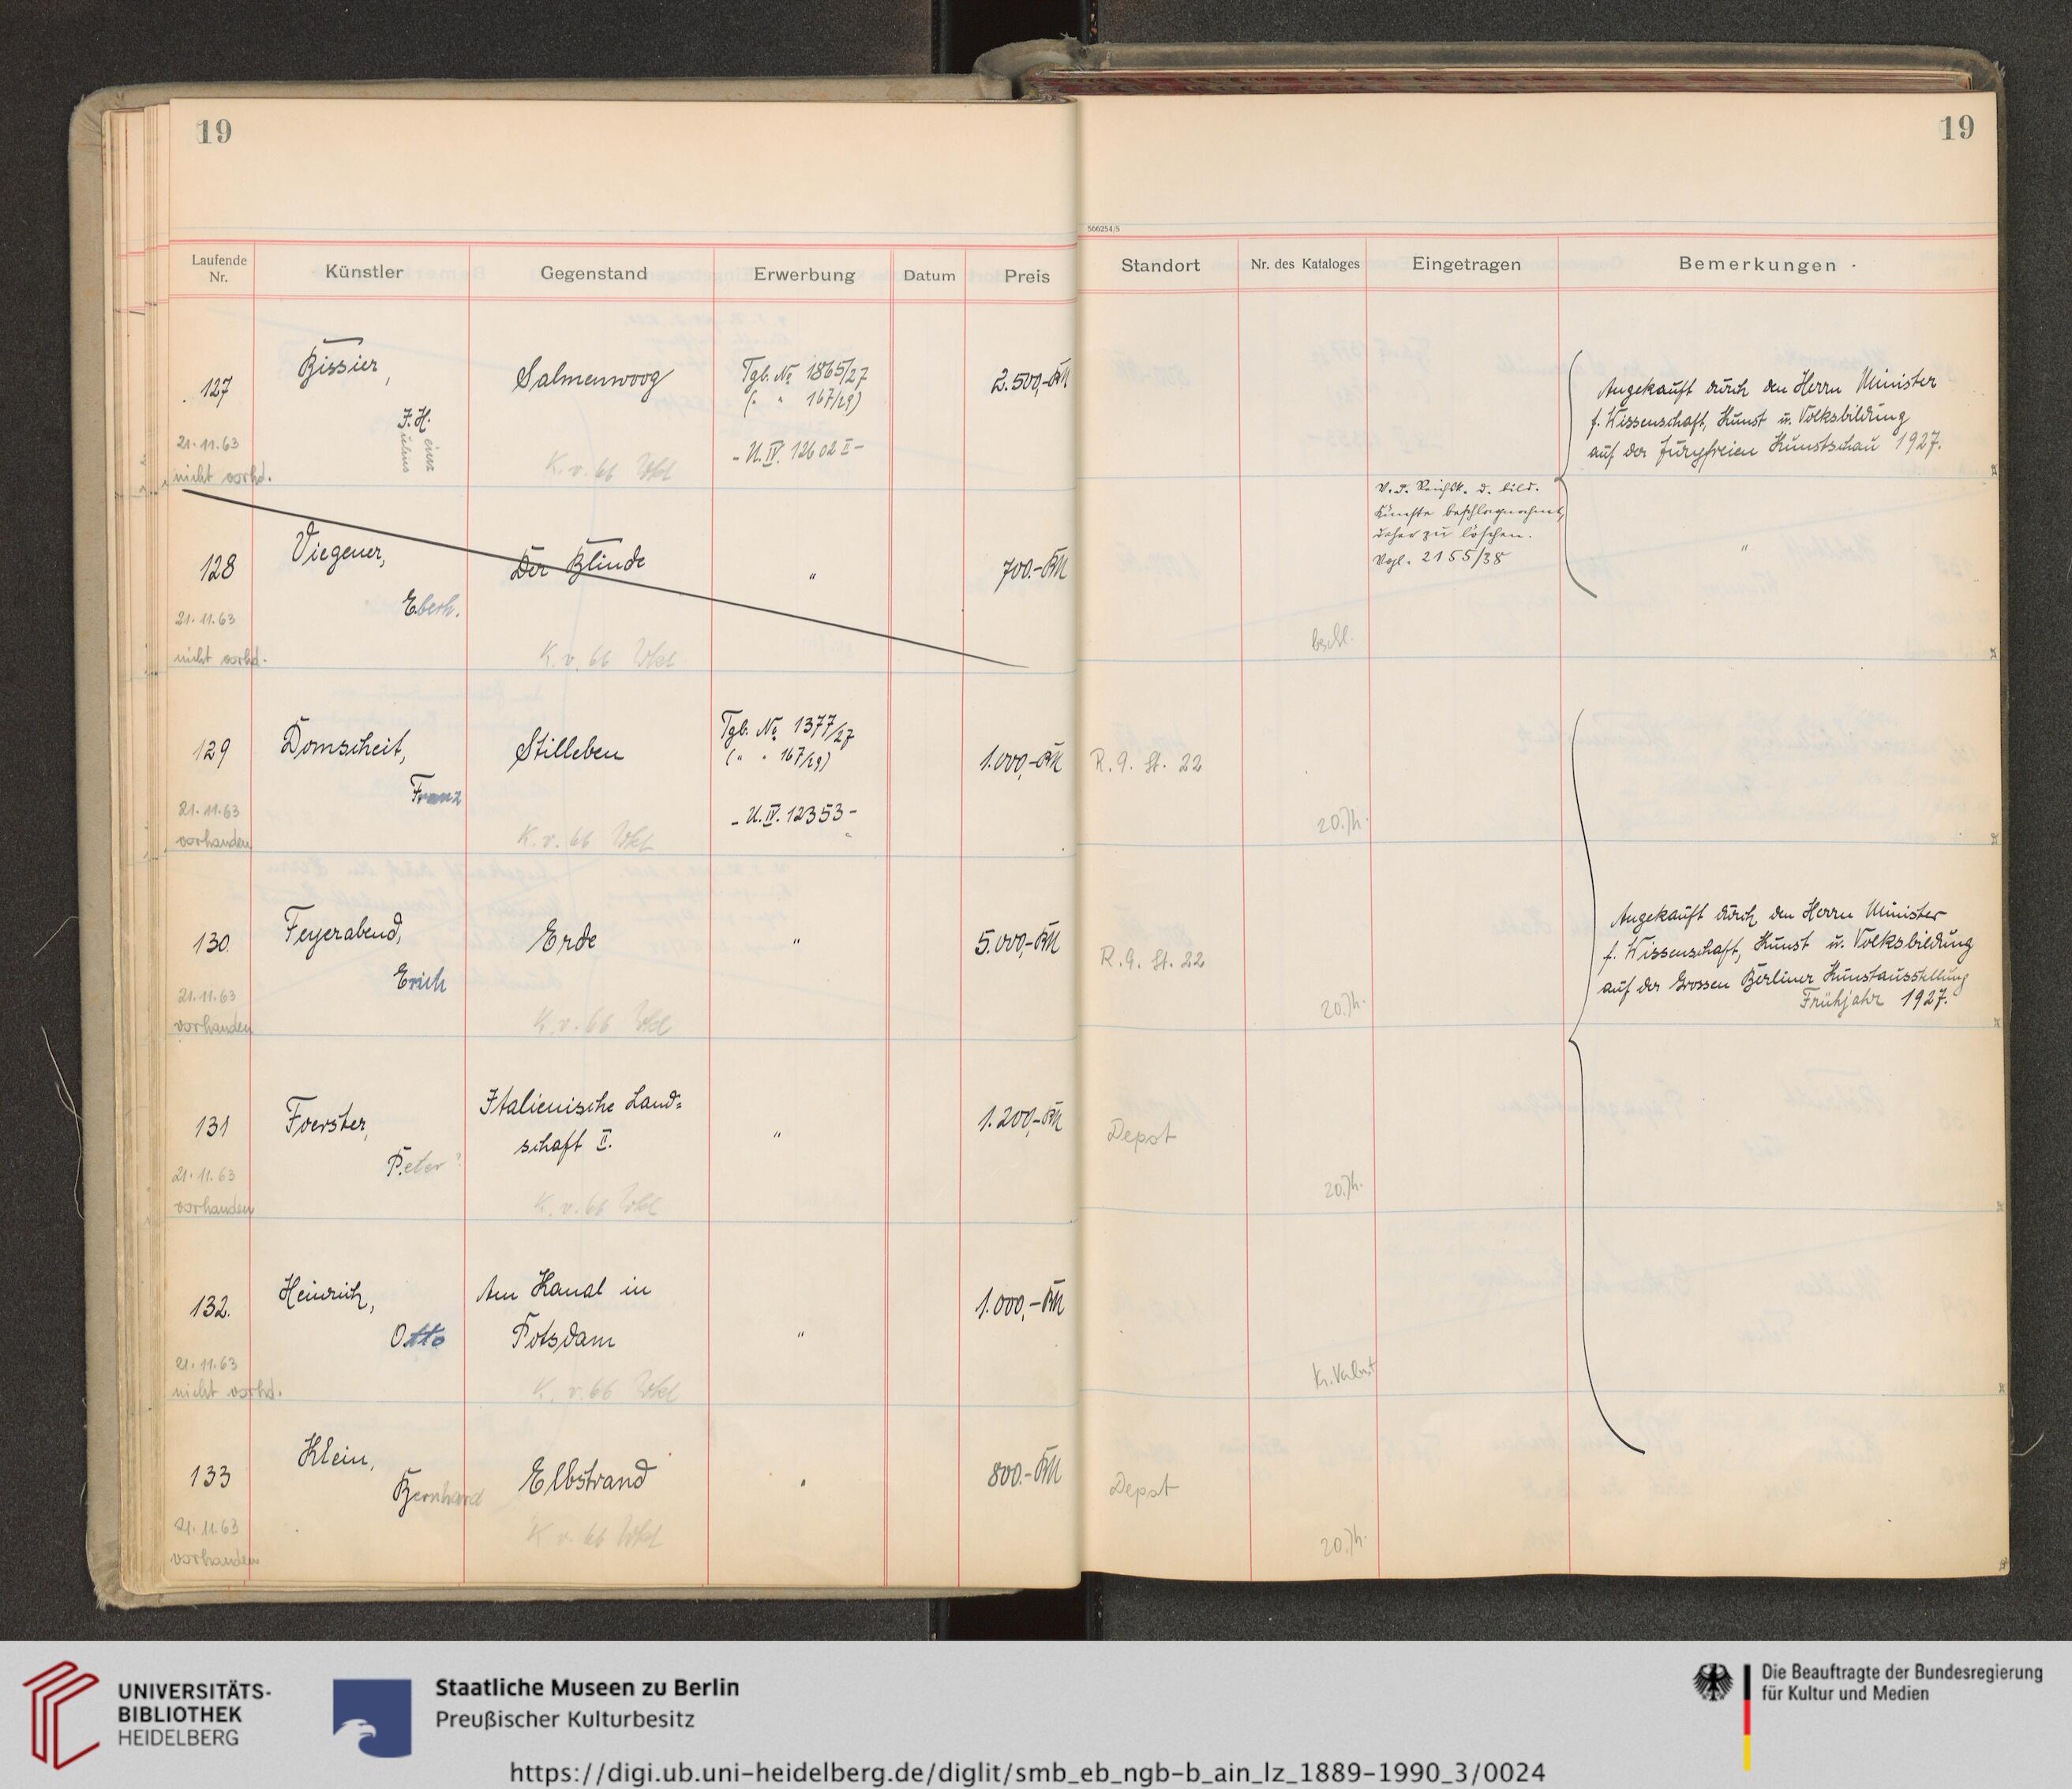 19
19
566254/5
Laufende Nr. Künstler Gegenstand Erwerbung Datum Preis Standort Nr. des Kataloges Eingetragen Bemerkungen
127 Bissier, Salmenwoog Tgb. No 1865/27 2.500,-RM
J.H. (" " 167/29)
ulius einz
- U.IV. 12602 II -
21.11.63
nicht vorhd.
K.v. 66
Angekauft durch den Herrn Minister
f. Wissenschaft, Kunst u. Volksbildung
auf der Juryfreien Kunstschau 1927.
128 Viegener, Der Blinde " 700.-RM
Eberh.
21.11.63
nicht vorhd.
K.v. 66
beschl.
V. d. Reichsk. d. bild.
Künste beschlagnahmt,
daher zu löschen.
Vgl. 2155/38
"
129 Domscheit, Stilleben Tgb. No 1377/27 1.000,-RM R.9. St. 22
Franz (" " 167/29)
- U.IV. 12353 -
21.11.63
vorhanden
K.v. 66
20.Jh.
130. Feyerabend, Erde " 5.000,-RM R.9. St. 22
Erich
21.11.63
vorhanden
K.v. 66
20.Jh.
Angekauft durch den Herrn Minister
f. Wissenschaft, Kunst u. Volksbildung
auf der Grossen Berliner Kunstausstellung
Frühjahr 1927.
131 Foerster, Italienische Land=
schaft II. " 1.200,-RM Depot
Peter ?
21.11.63
vorhanden
K.v. 66
20.Jh.
132. Heinrich, Am Kanal in
Potsdam " 1.000,-RM
Otto
21.11.63
nicht vorhd.
K.v. 66
133 Klein, Elbstrand " 800.-RM Depot
Bernhard
21.11.63
vorhanden
K.v. 66
20.Jh.
UNIVERSITÄTS-
BIBLIOTHEK
HEIDELBERG
Staatliche Museen zu Berlin
Preußischer Kulturbesitz
Die Beauftragte der Bundesregierung
für Kultur und Medien
https://digi.ub.uni-heidelberg.de/diglit/smb_eb_ngb-b_ain_lz_1889-1990_3/0024